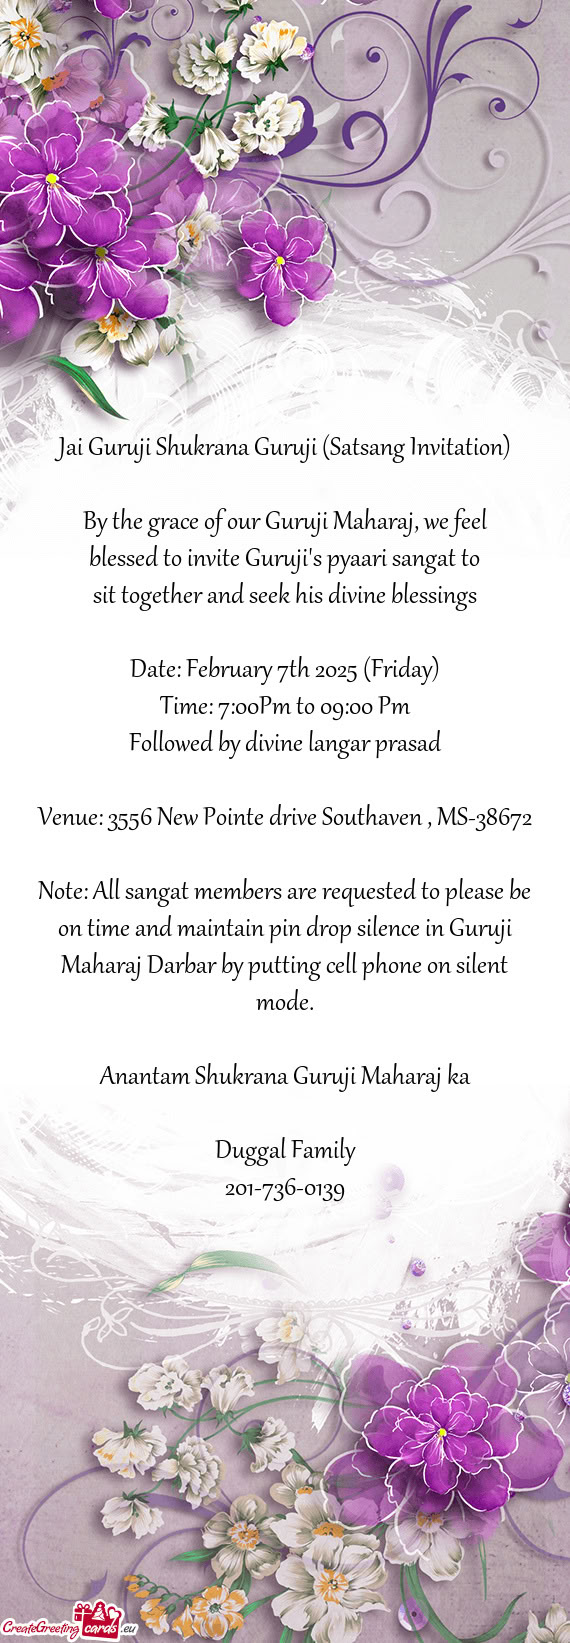 Jai Guruji Shukrana Guruji (Satsang Invitation)
By the grace of our Guruji Maharaj, we feel
blessed to invite Guruji's pyaari sangat to
sit together and seek his divine blessings
Date: February 7th 2025 (Friday)
Time: 7:00Pm to 09:00 Pm
Followed by divine langar prasad
Venue: 3556 New Pointe drive Southaven , MS-38672
Note: All sangat members are requested to please be
on time and maintain pin drop silence in Guruji
Maharaj Darbar by putting cell phone on silent
mode.
Anantam Shukrana Guruji Maharaj ka
Duggal Family
201-736-0139
CreateGreeting cards .eu